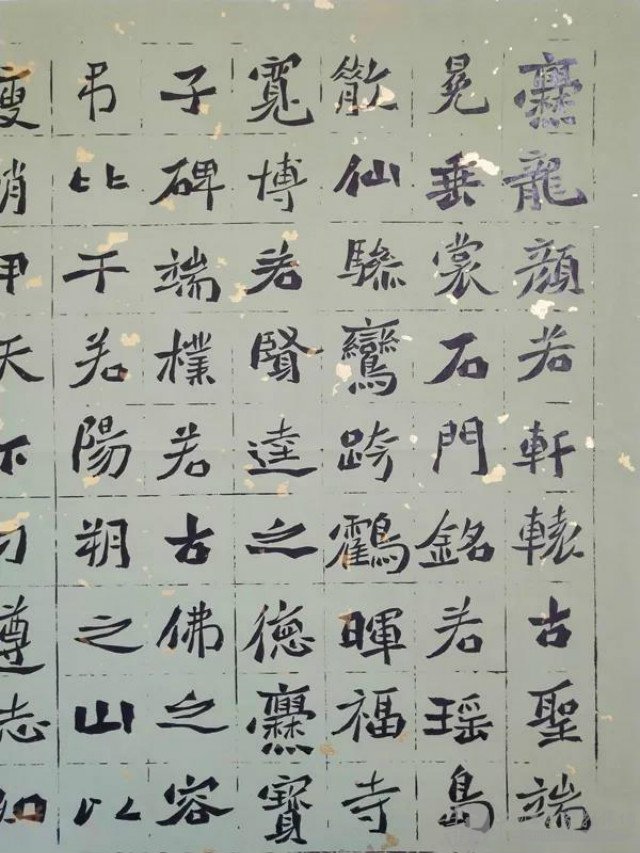 爨龍顔若軒轅古聖端
冕垂裳石門銘若瑶島
散仙驂鸞跨鶴暉福寺
寬博若賢逹之德爨寶
子碑端樸若古佛之容
吊比干若陽朔之山以
瘦峭甲天下刁遵志如